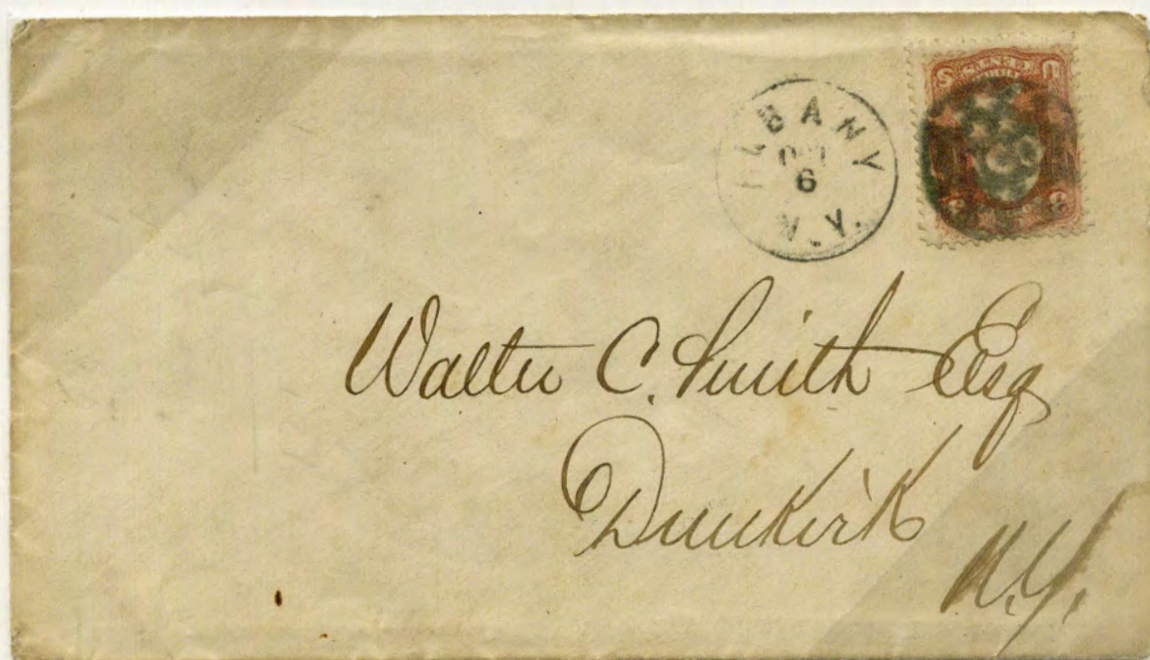 ALBANY
OCT
6
N.Y.
U S
Walter C. Smith Esq
Dunkirk
N.Y.